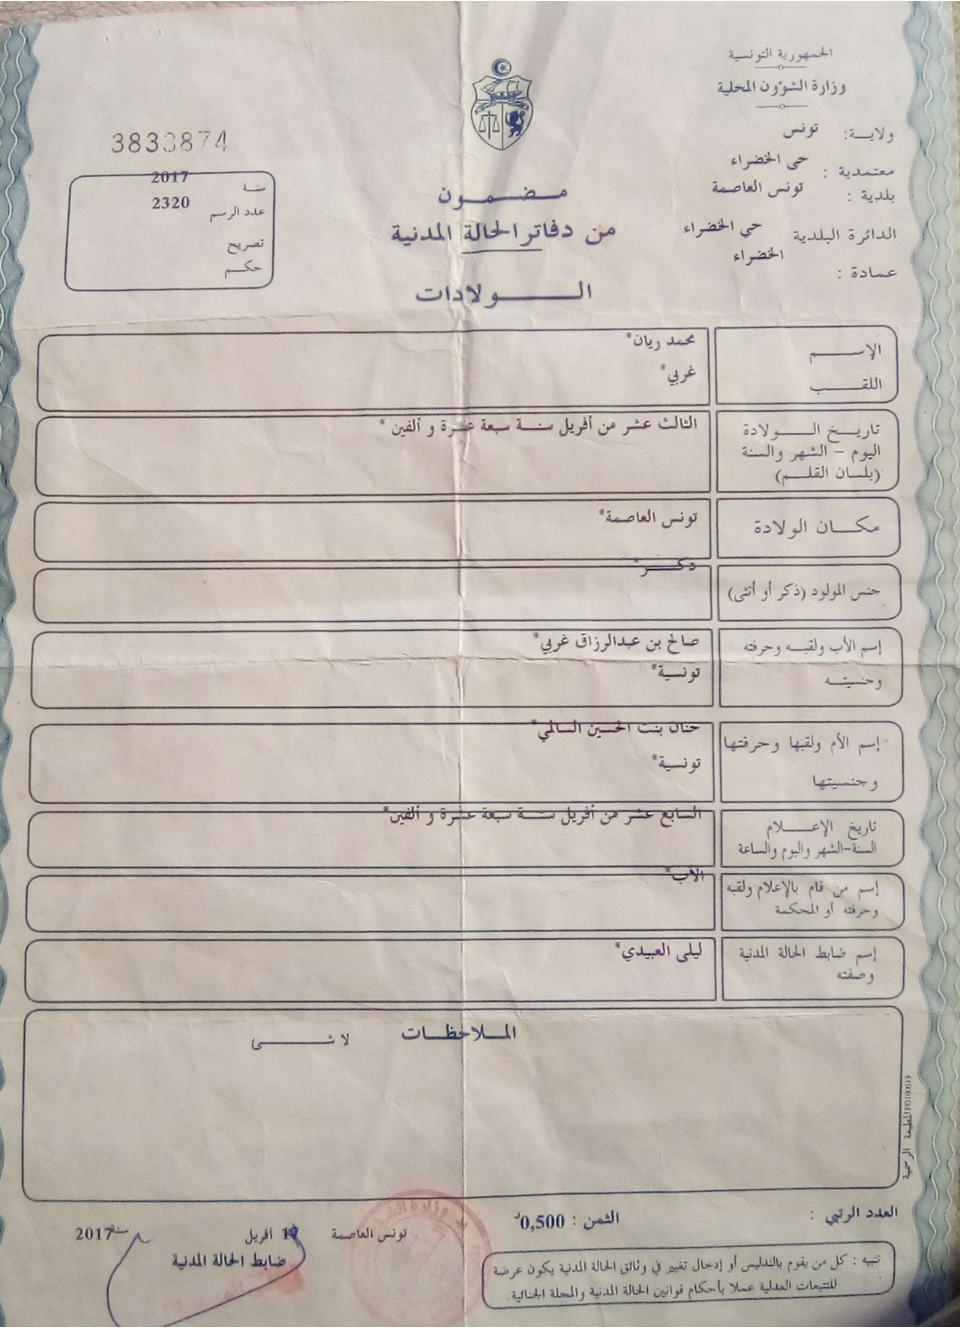 الجمهورية التونسية
وزارة الشؤون المحلية
ولاية: تونس
معتمدية : حي الخضراء
بلدية : تونس العاصمة
الدائرة البلدية حي الخضراء
عمادة : الخضراء
3833874
سنة 2017
عدد الرسم 2320
تصريح
حكم
مضمون
من دفاتر الحالة المدنية
الولادات
الإسم محمد ريان*
اللقب غربي*
تاريخ الولادة الثالث عشر من أفريل سنة سبعة عشرة و ألفين *
اليوم - الشهر والسنة
(بلسان القلم)
مكان الولادة تونس العاصمة*
جنس المولود (ذكر أو أنثى) ذكر*
إسم الأب ولقبه وحرفته صالح بن عبدالرزاق غربي*
وجنسيته تونسية*
إسم الأم ولقبها وحرفتها حنان بنت الحسين السالمي*
وجنسيتها تونسية*
تاريخ الإعلام السابع عشر من أفريل سنة سبعة عشرة و ألفين*
السنة-الشهر واليوم والساعة
إسم من قام بالإعلام ولقبه الأب*
وحرفته أو المحكمة
إسم ضابط الحالة المدنية ليلى العبيدي*
وصفته
الملاحظات
لا شئ
المطبعة الرسمية
العدد الرتبي :
الثمن : 0,500د
تنبيه : كل من يقوم بالتدليس أو إدخال تغيير في وثائق الحالة المدنية يكون عرضة
للتتبعات العدلية عملا بأحكام قوانين الحالة المدنية والمجلة الجنائية.
تونس العاصمة أفريل سنة 2017
ضابط الحالة المدنية